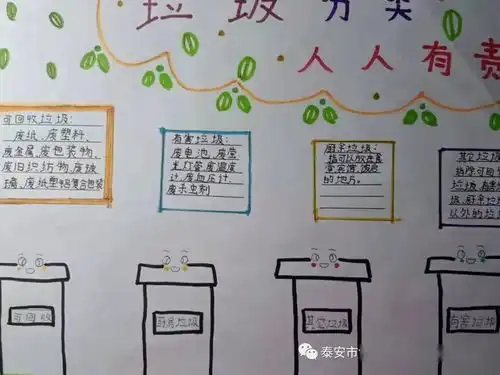 垃圾分类
人人有责
可回收垃圾:
废纸,废塑料,
废金属,废包装物,
废旧织物,废玻
璃,废纸塑铝复合包装
有害垃圾:
废电池,废荧
光灯管,废温度
计,废血压计,
废杀虫剂
厨余垃圾:
的地方。
其它垃圾:
垃圾,有害
圾,厨余垃圾
以外的垃圾
可回收
厨房垃圾
其它垃圾
有害垃圾
泰安市